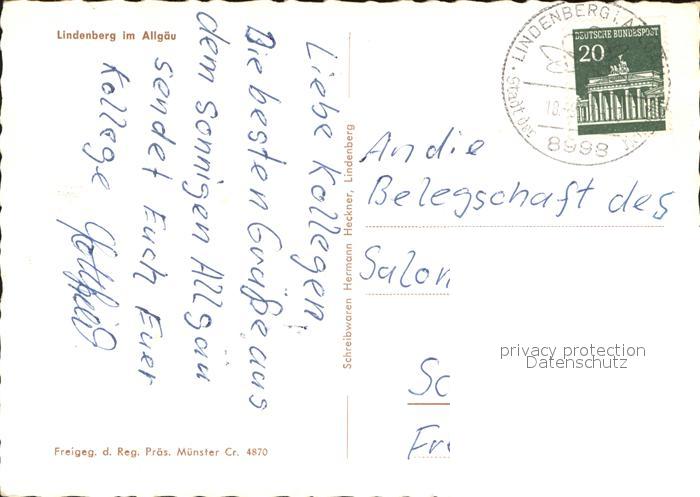 Lindenberg im Allgäu
Liebe Kollegen,
Die besten Grüße aus
dem sonnigen Allgäu
sendet Euch Euer
Kollege
Freigeg. d. Reg. Präs. Münster Cr. 4870
Schreibwaren Hermann Heckner, Lindenberg
LINDENBERG
8998
DEUTSCHE BUNDESPOST
20
An die
Belegschaft des
Salon
privacy protection
Datenschutz